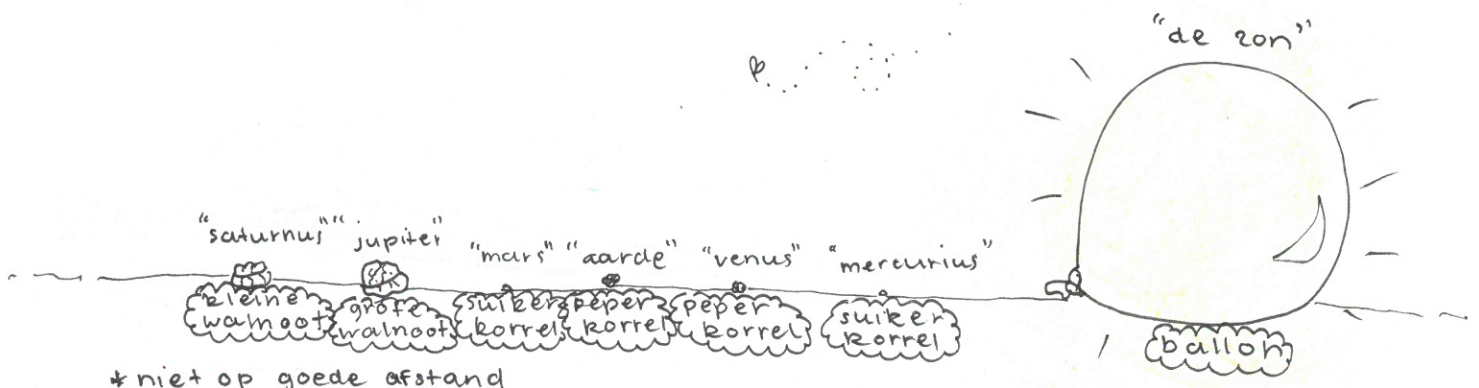 "de zon"
"saturnus" "jupiter" "mars" "aarde" "venus" "mercurius"
kleine walnoot
grote walnoot
suiker korrel
peper korrel
peper korrel
suiker korrel
ballon
* niet op goede afstand